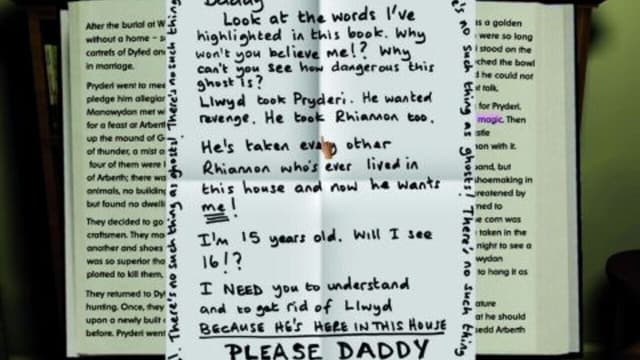 After the burial at W
without a home – s
cantrefs of Dyfed an
in marriage.
Pryderi went to mee
pledge him allegian
Manawydan met w
for a feast at Arbert
up the mound of G
of thunder, a mist
four of them were
of Arberth; there wa
animals, no building
but found no dwelli
They decided to go
craftsmen. They ma
another and shoes
was so superior tha
plotted to kill them,
They returned to Dyf
hunting. Once, they
upon a newly built
before. Pryderi went
There's no such thing as ghosts! There's no such thing
Daddy
Look at the words I've
highlighted in this book. Why
won't you believe me!? Why
can't you see how dangerous this
ghost is?
Llwyd took Pryderi. He wanted
revenge. He took Rhiannon too.
He's taken every other
Rhiannon who's ever lived in
this house and now he wants
me!
I'm 15 years old. Will I see
16!?
I NEED you to understand
and to get rid of Llwyd
BECAUSE HE'S HERE IN THIS HOUSE
PLEASE DADDY
e's no such thing as ghosts! There's no such thing
s a golden
were so long
stood on the
ched the bowl
d he could not
talk.
for Pryderi.
magic. Then
stle
on with it.
and, but
hoemaking in
reatened by
ned to
e corn was
taken in the
night to see a
wydan
to hang it as
ature
at he should
sedd Arberth